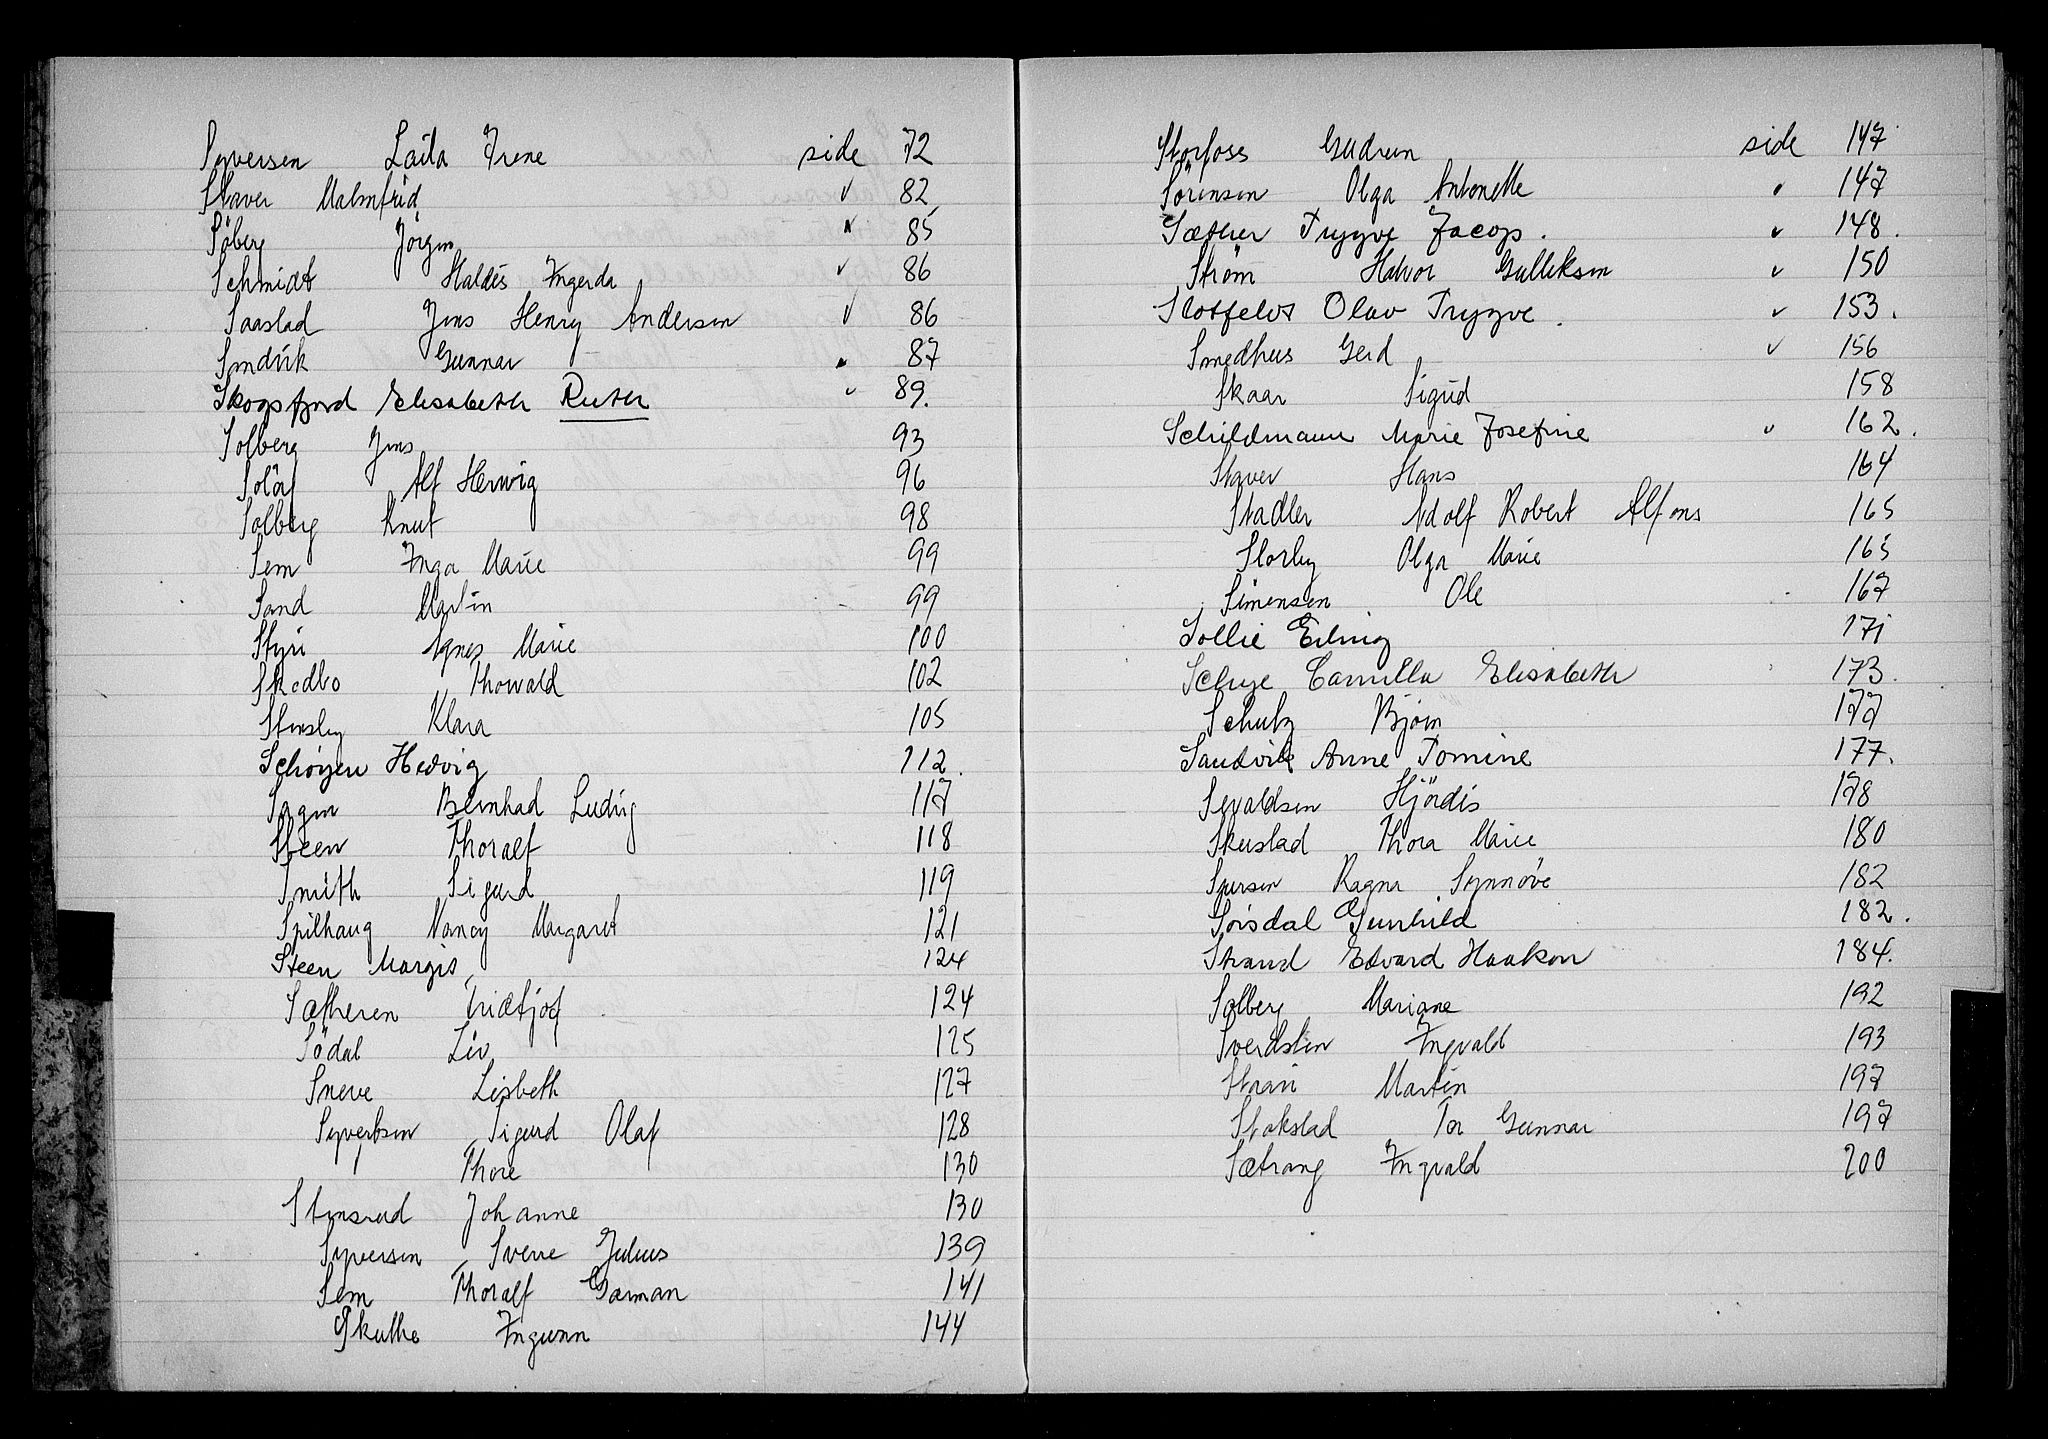 Syversen Laila Irene side 72
Staver Malmfrid " 82
Söberg Jörgen " 85
Schmidt Haldis Ingerda " 86
Saastad Jens Henry Andersen " 86
Sandvik Gunnar " 87
Skogsfjord Elisabeth Ruth " 89.
Solberg Jens 93
Solör Alf Herwig 96
Solberg Knut 98
Sem Inga Marie 99
Sand Martin 99
Styri Agnes Marie 100
Skodbo Thorvald 102
Stensby Klara 105
Schøyen Hedvig 112.
Sagen Bernhad Ludvig 117
Steen Thoralf 118
Smith Sigurd 119
Spilhaug Nancy Margaret 121
Steen Margis 124
Sætheren Fridtjof 124
Södal Liv 125
Sneve Lisbeth 127
Syvertsen Sigurd Olaf 128
" Thore 130
Stensrud Johanne 130
Syversen Sverre Julius 139
Sem Thoralf Garman 141
Skuthe Ingunn 144
Storfoss Gudrun side 147
Sörensen Olga Antonette " 147
Sæther Trygve Jacop. " 148.
Strøm Halvor Gulliksen " 150
Slotfeldt Olav Trygve. " 153.
Smedhus Gerd " 156
Skaar Sigrid 158
Schildmann Marie Josefine " 162.
Staver Hans 164
Stadler Adolf Robert Alfons 165
Storby Olga Marie 165
Simensen Ole 167
Sollie Erling 171
Schye Camilla Elisabeth 173.
Schutz Bjørn 177
Sandvik Anne Tomine 177.
Sevaldsen Hjördis 178
Skustad Thora Marie 180
Syversen Ragna Synnöve 182
Sørsdal Gunhild 182.
Strand Edvard Haakon 184.
Solberg Mariane 192
Sverdsten Ingvald 193
Martin 197
Stokstad Tor Gunnar 197
Sætrang Ingvald 200